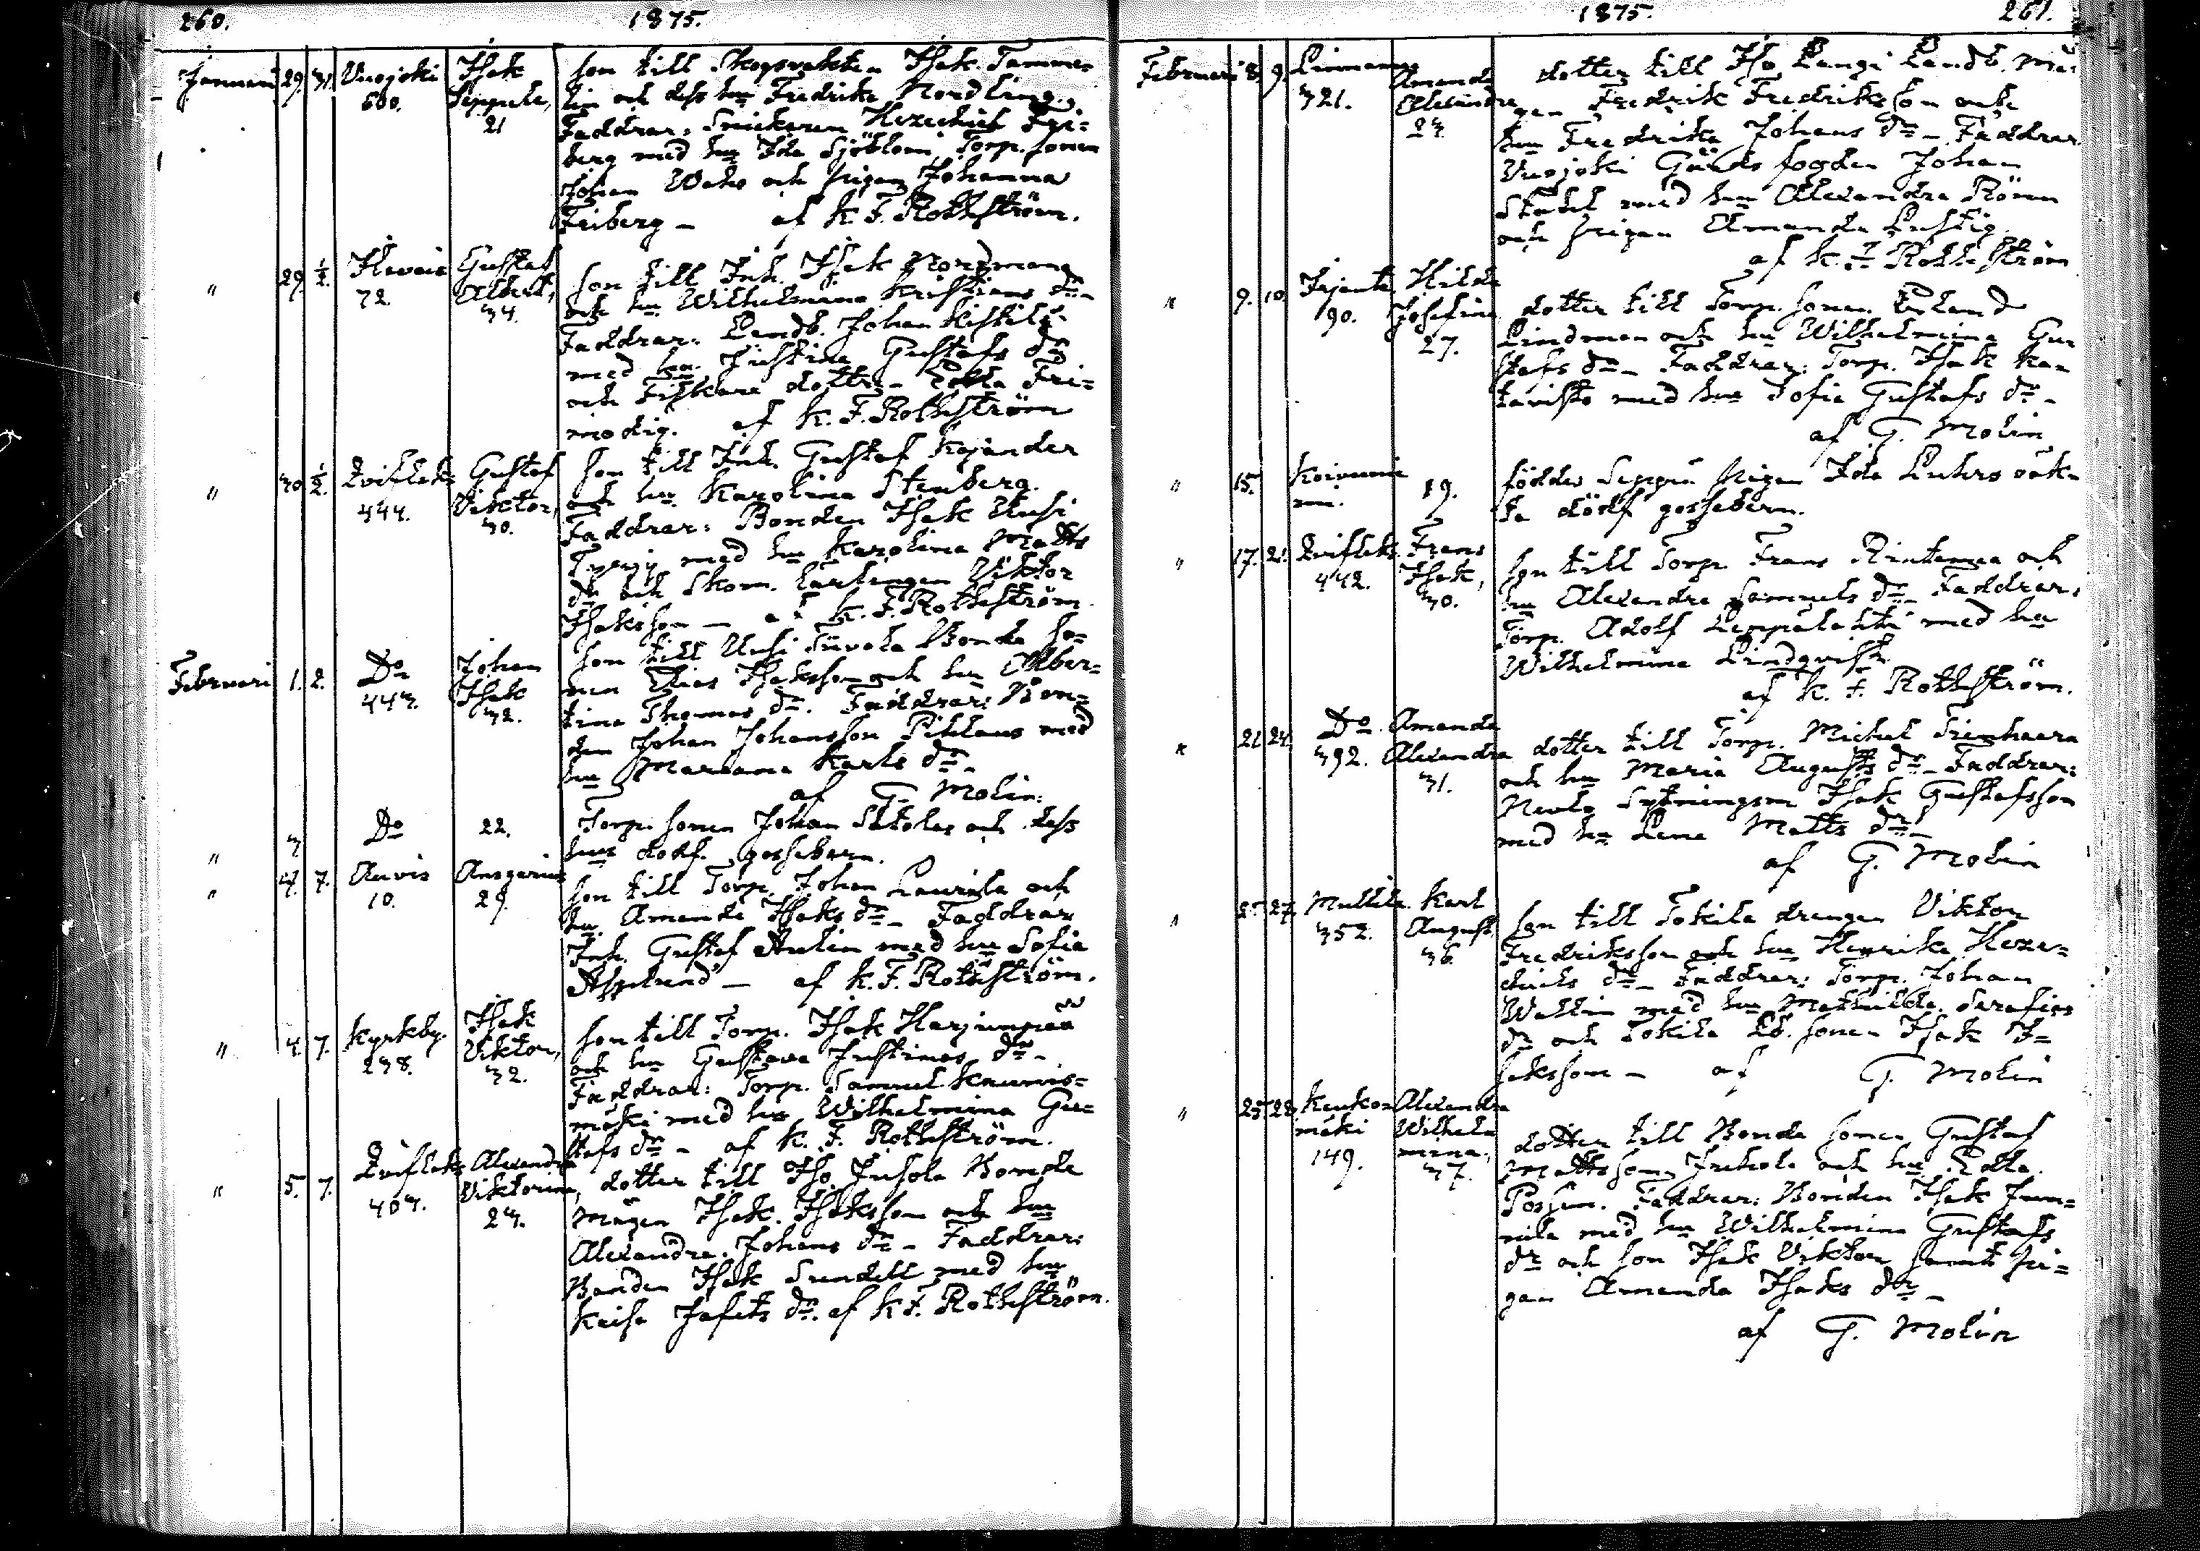 260. 1875.
Januari 29. 31. Vuojoki 600. Isak Seppele, 21
Son till Skogsvakten Isak Tamme-
lin och dess hu Fredrika Nordling.
Faddrar: Snickaren Hezechiel Fri-
berg med hu Ida Sjöblom, Torp. sonen
Johan Wahs och pigan Johanna
Friberg — af K. F. Rothström.
" 29. 1/2. 72. Gustaf Albert, 34.
Son till Inh. Isak Nordman
och hu Wilhelmina Kristians dr.
Faddrar: Landb. Johan Heikkilä
med hu Justina Gustafs dr
och Fiskare dottern Lotta Fri-
modig. af K. F. Rothström
" 30. 1/2. 444. Gustaf Viktor, 30.
Son till Inh. Gustaf Kajander
och hu Karolina Stenberg.
Faddrar: Bonden Isak Uusi
med hu Karolina Matts
dr och Skom. Lärlingen Viktor
Isaksson — af K. F. Rothström.
Februari 1. 2. Do 443. Johan Isak 32.
Son till Uusi Süvola Bonde So-
nen Elias Isaksson och hu Alber-
tina Thomas dr. Faddrar: Bon-
den Johan Johansson Pihlaus med
hu Mariana Karls dr.
af G. Molin.
" 3 Do 22.
Torp. sonen Johan Skoles och dess
hus dödf. gossebarn.
" 4. 7. Auvis 10. Ansgarius 29.
Son till Torp. Johan Laurila och
hu Amanda Isaks dr — Faddrar
Inh. Gustaf Aulin med hu Sofia
Asplund — af K. F. Rothström.
" 4. 7. Kyrkby. 238. Isak Viktor, 32.
Son till Torp. Isak Harjunpää
och hu Gustava Justinas dr —
Faddrar: Torp. Samuel Kaunis-
mäki med hu Wilhelmina Gu-
stafs dr — af K. F. Rothström.
" 5. 7. 403. Alexandra Viktorina, 23.
dotter till Iso Juhola Bonde
Mågen Isak Isaksson och hu
Alexandra Johans dr — Faddrar:
Bonden Isak Sundell med hu
Kaisa Jafets dr. af K. F. Rothström.
1875. 261.
Februari 8. 9. Linnamaa 321. Amanda Alexandra 23.
dotter till Iso Langi Landb. Må-
gen Fredrik Fredriksson och
hu Fredrika Johans dr — Faddrar
Vuojoki Gårdsfogden Johan
Stadel med hu Alexandra Römm
och pigan Amanda Lustig.
af K. F. Rothström
" 9. 10. 90. Hilda Josefina 27.
dotter till Torp. sonen Erland
Lindman och hu Wilhelmina Gu-
stafs dr — Faddrar: Torp. Isak Ka-
taristo med hu Sofia Gustafs dr —
af G. Molin
" 15. Koivunie mi. 19.
föddes Seppä Pigan Ida Luhrs oäk-
ta dödf gossebarn.
" 17. 21. 442. Frans Isak, 30.
Son till Torp. Frans Rintamaa och
hu Alexandra Samuels dr — Faddrar:
Torp. Adolf Leppälahti med hu
Wilhelmina Lindqvist.
af K. F. Rothström.
" 21 24. Do 392. Amanda Alexandra 31.
dotter till Torp. Michel Sienhaara
och hu Maria Augusts dr — Faddrar:
Sytningsm Isak Gustafsson
med hu Lena Matts dr —
af G. Molin
" 25. 27. Mullila 352. Karl August, 36.
Son till Tokila drengen Viktor
Fredriksson och hu Henrika Heze-
chiels dr — Faddrar: Torp. Johan
Wallin med hu Mathilda Serafias
dr och Tokila Lb. sonen Isak I-
saksson — af G. Molin
" 25. 28. Kaukon mäki 149. Alexandra Wilhel mina, 37.
dotter till Bonde sonen Gustaf
Mattsson Juhola och hu Lotta
Possen. Faddrar: Bonden Isak Jun-
nila med hu Wilhelmina Gustafs
dr och son Isak Viktor samt Pi-
gan Amanda Isaks dr —
af G. Molin